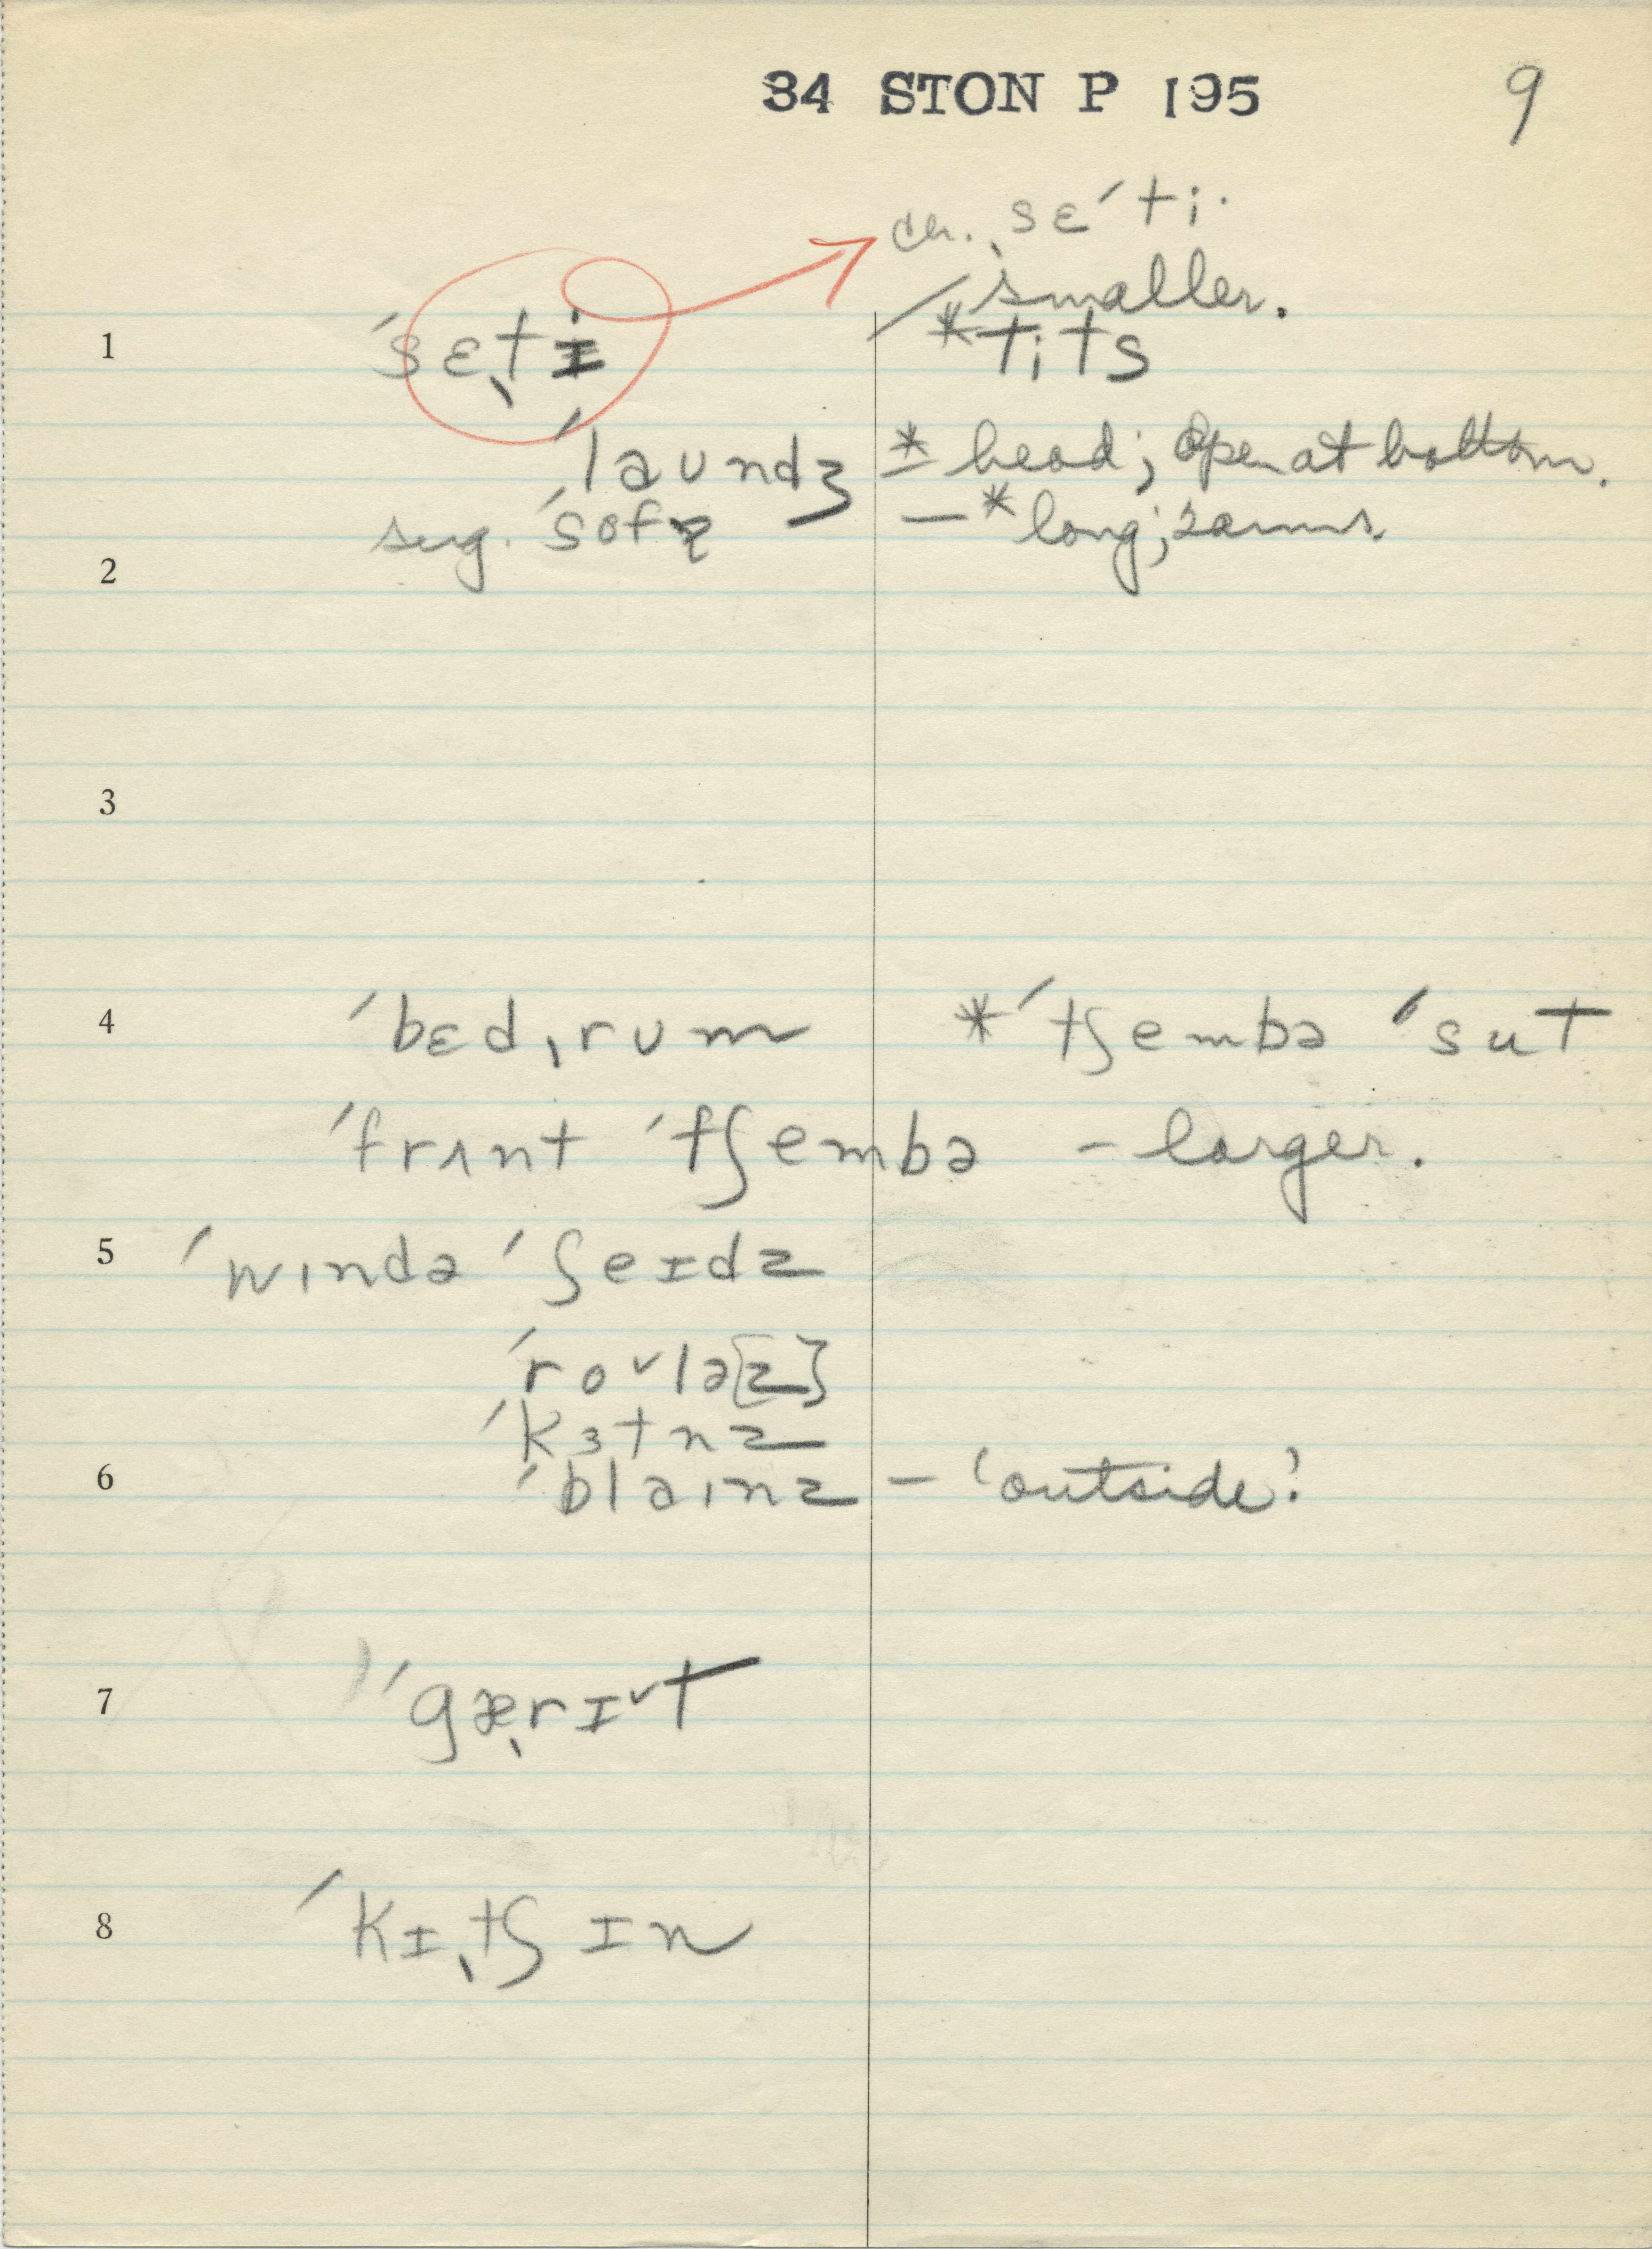 34 STON P 195 9
ch. ˌsɛˈti.
smaller.
1 ˈsɛˌti *tits
ˈlaundʒ * head; open at bottom.
sug. ˈsofə – *long; 2 arms.
2
3
4 ˈbɛdˌrum *ˈtʃembə ˈsut
ˈfrʌnt ˈtʃembə – larger.
5 ˈwɪndə ˈʃeɪdz
ˈro˅lə[z]
ˈkɜtnz
6 ˈblaɪnz – 'outside'
7 ˈgæˌrɪ˅t
8 ˈkɪˌtʃɪn